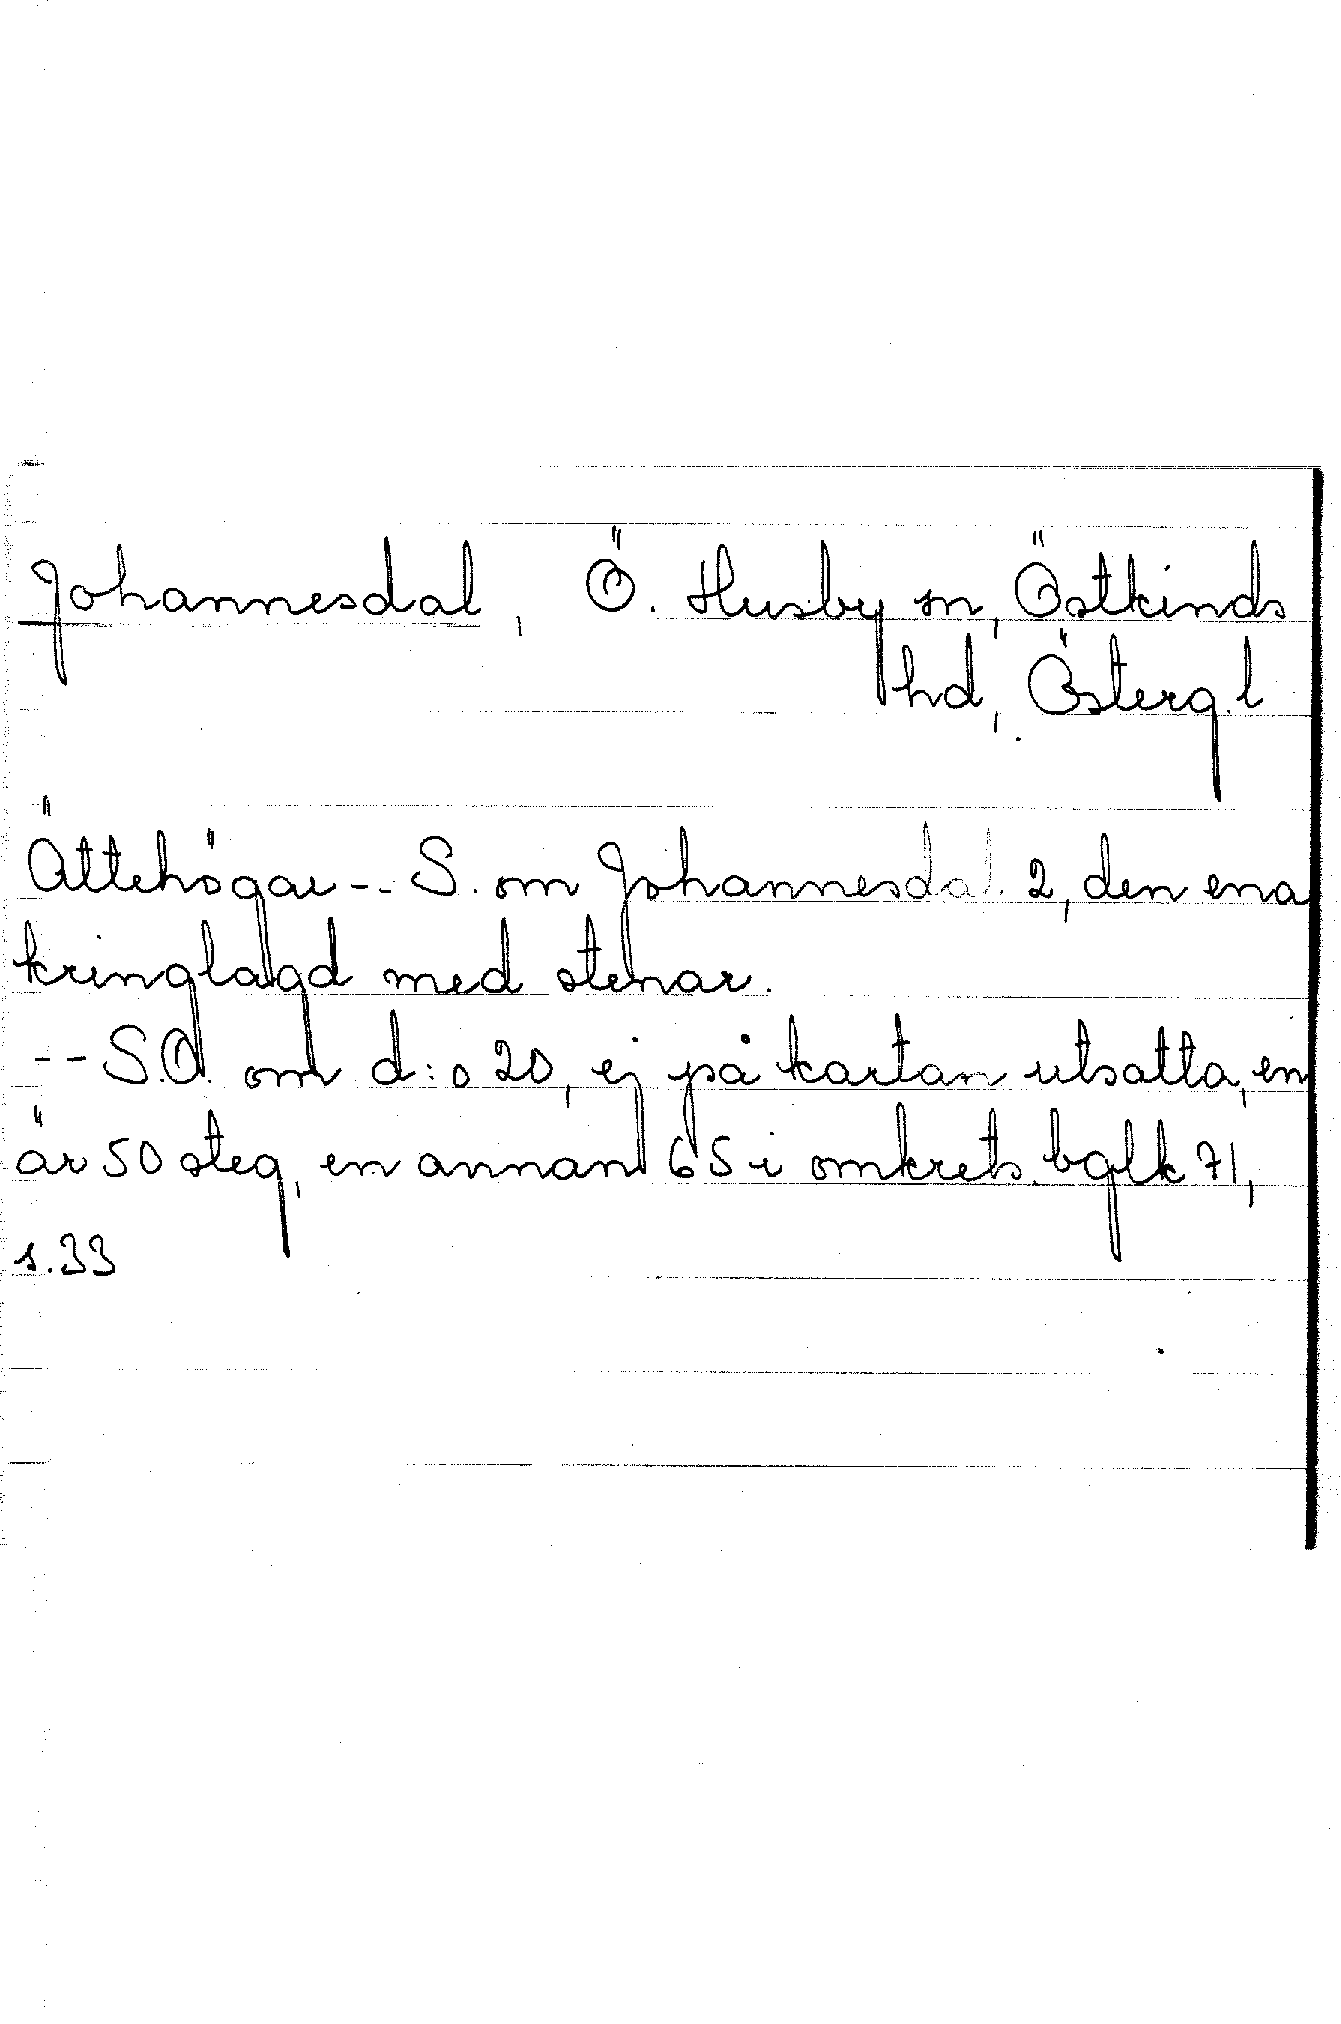 Johannesdal, Ö. Husby sn, Östkinds
hd, Österg.l
Ättehögar -- S. om Johannesdal. 2, den ena
kringlagd med stenar.
-- S.O. om d:o 20, ej på kartan utsatta, en
är 50 steg, en annan 65 i omkrets. bglk 71,
s.33